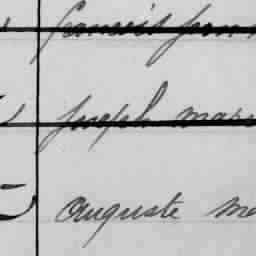 francois fran
Joseph mar
auguste ma